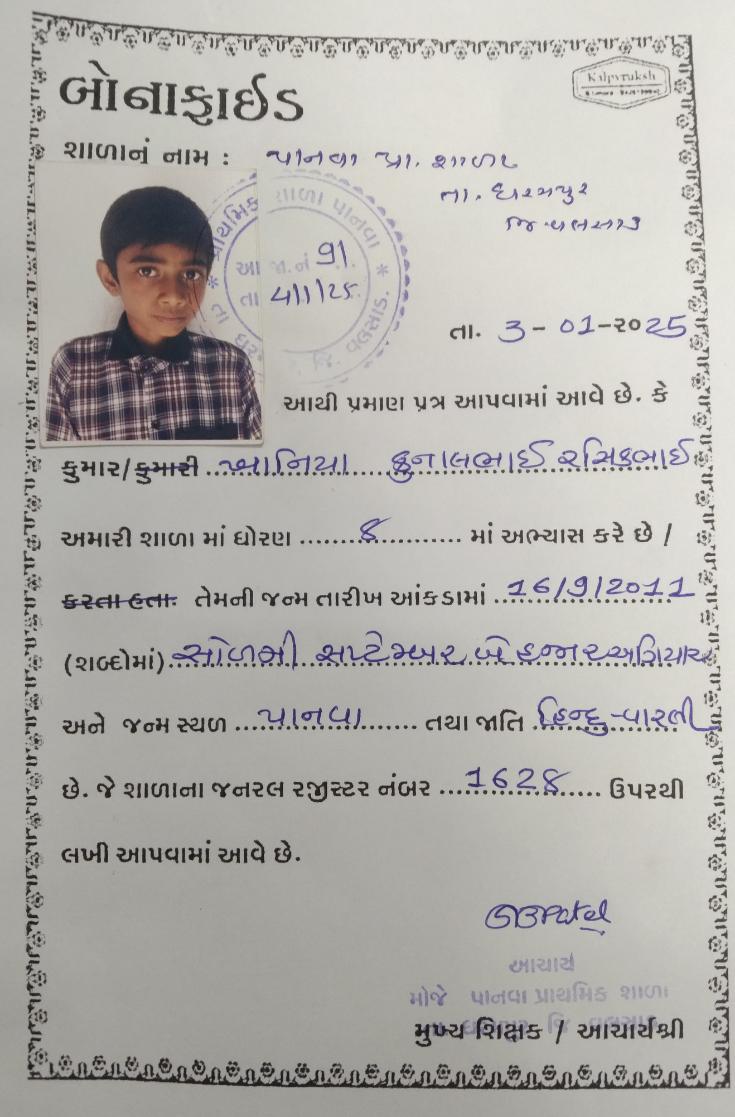 બોનાફાઈડ
Kalpvruksh
શાળાનું નામ : પાનવા પ્રા. શાળા
તા. ધરમપુર
જિ વલસાડ
પ્રાથમિક શાળા પાનવા
આ જા.નં 91
તા 4/1/25
જિ. વલસાડ.
તા. 3-01-૨૦25
આથી પ્રમાણ પ્રત્ર આપવામાં આવે છે. કે
કુમાર/કુમારી ખાનિયા કુનાલભાઈ રસિકભાઈ
અમારી શાળા માં ધોરણ ......8............ માં અભ્યાસ કરે છે /
કરતા હતા. તેમની જન્મ તારીખ આંકડામાં 16/9/2011
(શબ્દોમાં) સોળમી સપ્ટેમ્બર બે હજાર અગિયાર
અને જન્મ સ્થળ ...પાનવા....... તથા જાતિ હિન્દુ-વારલી
છે. જે શાળાના જનરલ રજીસ્ટર નંબર ...1628..... ઉપરથી
લખી આપવામાં આવે છે.
GBPatel
આચાર્ય
મોજે પાનવા પ્રાથમિક શાળા
મુખ્ય શિક્ષક / આચાર્યશ્રી